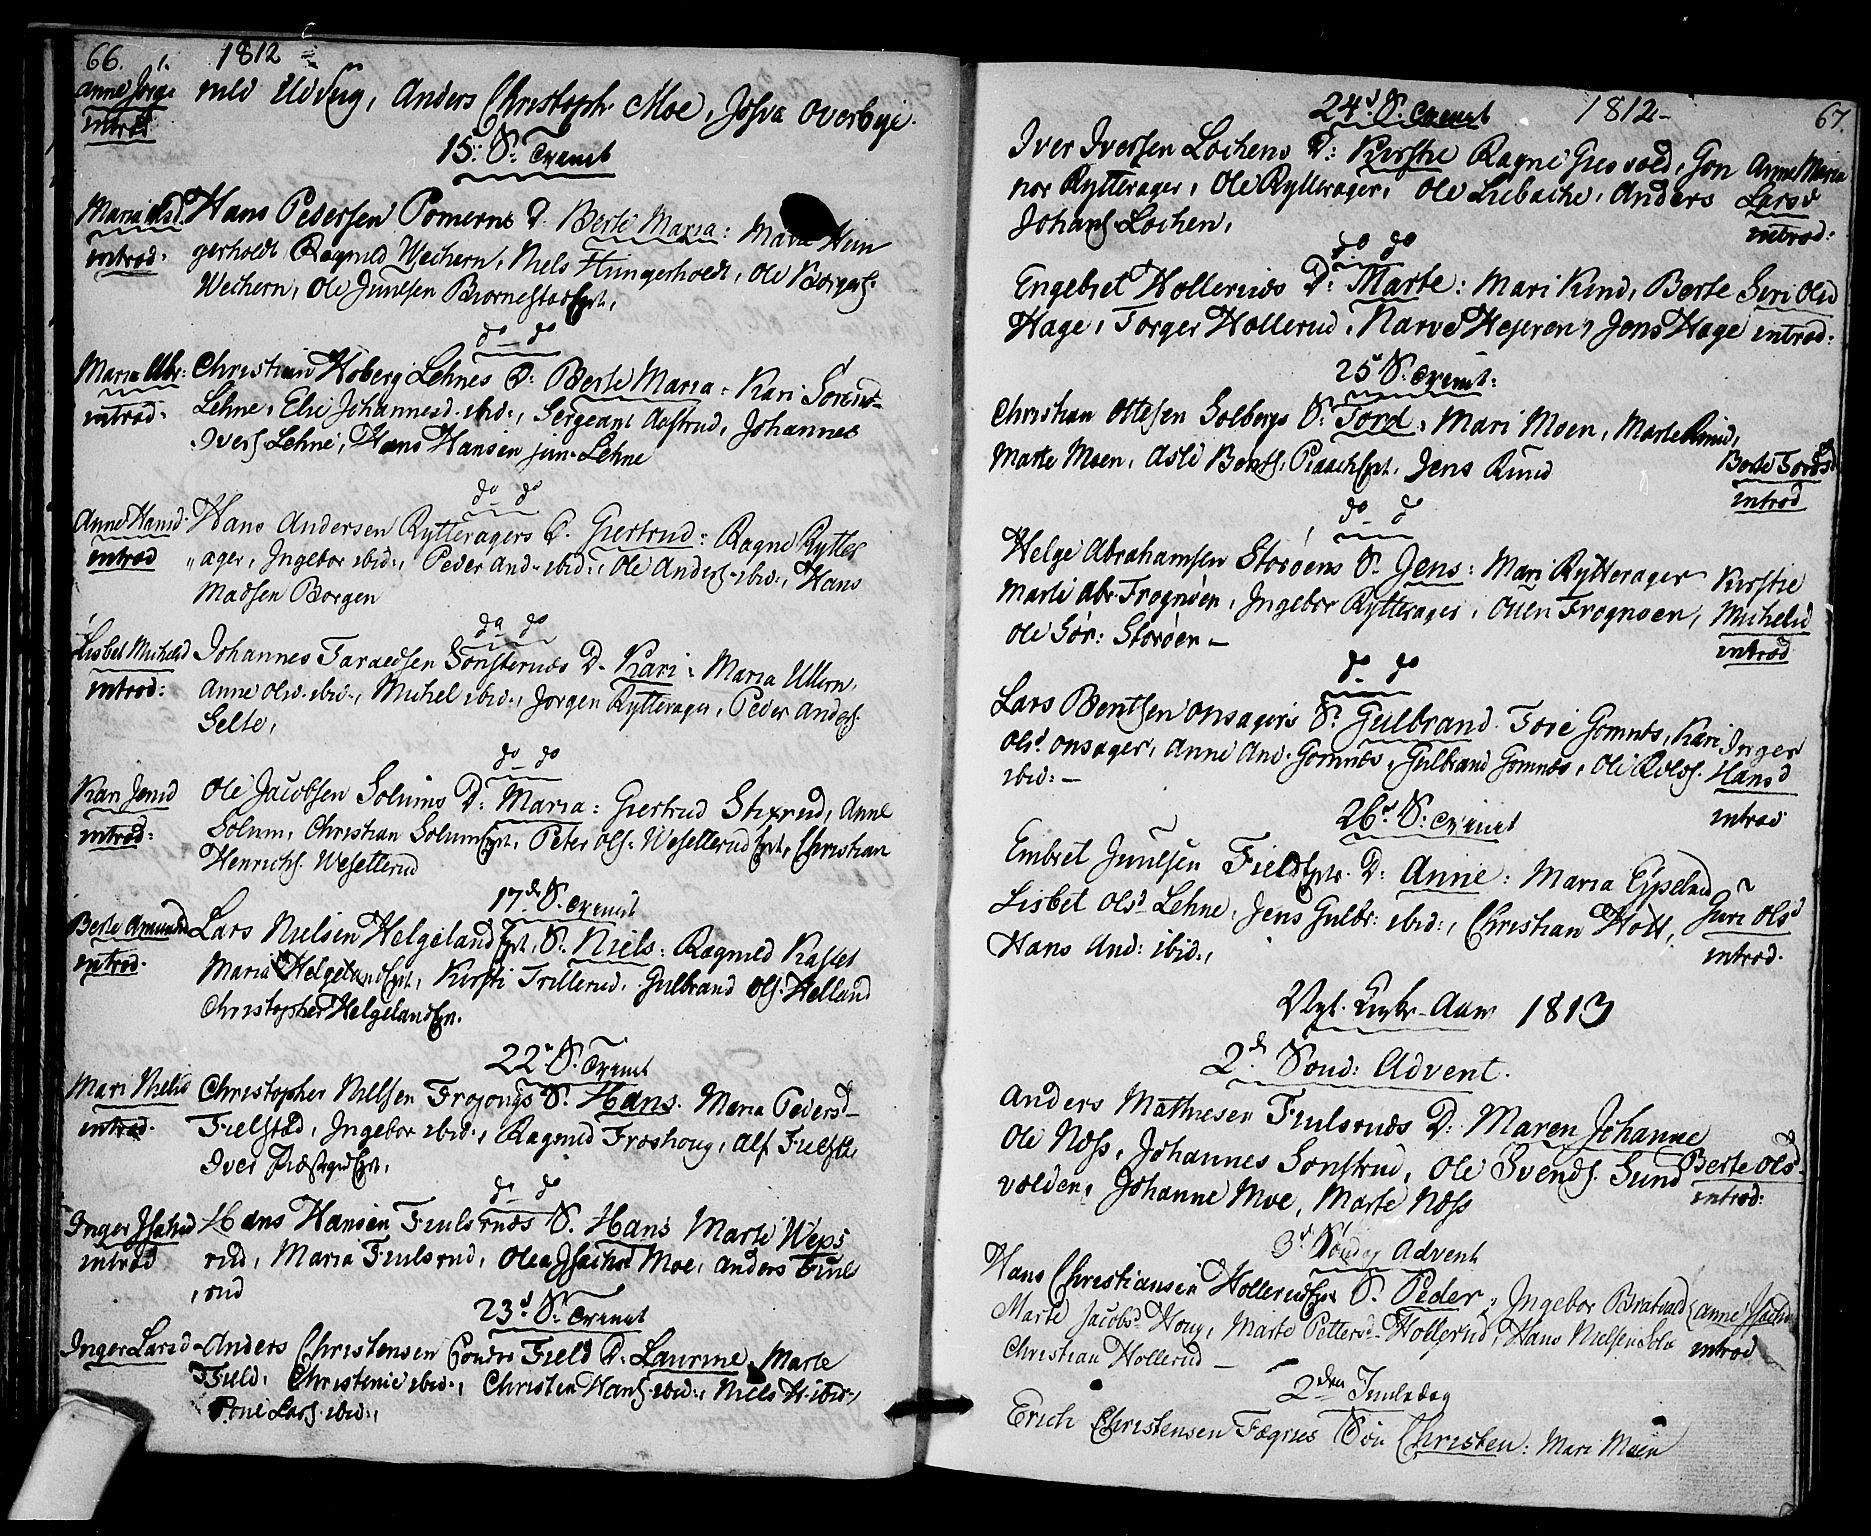 66. 1812
Anne Jørg.
introd
Udvig, Anders Christoph. Moe, Josva Overbye.
15. S. Trinit
Maria Olsd.
introd.
Hans Pedersen Pomerns D. Berte Maria: Maria Hun
gerholdt Ragnild Wechern, Niels Hungerholdt, Ole Børgers.
Wechern, Ole Juulsen Biørnestad Ept.,
do do
Maria Abr:
introd:
Christian Hoberg Lehnes D: Berte Maria: Kari Sørensd
Lehne, Else Johannesd. ibid:, Sergeant Aastrud, Johannes
Ivers. Lehne, Hans Hansen jun. Lehne
do do
Anne Hansd.
introd
Hans Andersen Rytteragers D. Giertrud: Ragne Rytter
ager, Ingebor ibid:, Peder And. ibid:, Ole Anders. ibid:, Hans
Madsen Borgen
do do
Lisbet Michelsd
introd:
Johannes Taraldsen Sønsteruds D. Kari: Maria Ullern,
Anne Olsd. ibid., Michel ibid., Jørgen Rytterager, Peder Anders.
Selte,
do do
Kari Jensd
introd:
Ole Jacobsen Solums D: Maria: Giertrud Stixrud, Anne
Solum, Christian Solum Ept., Peter Ols. Wesetterud Ept., Christian
Henrichs. Wesetterud
17de S. Trinit
Berte Amundsd
introd.
Lars Nielsen Helgeland Ept. S. Niels: Ragnild Kastet
Maria Helgeland Ept., Kirsti Trillerud, Gulbrand Ols. Helland
Christopher Helgeland Ept.
22de S. Trinit
Mari Nielsd
introd.
Christopher Nielsen Frøyongs S. Hans. Maria Pedersd
Fielstad, Ingebor ibid:, Ragnild Frøshoug, Alf Fielstad
Iver Ept.
do do
Inger Isachsd
introd
Hans Hansen Fiulsruds S. Hans Marte Weps
rud, Maria Fiulsrud, Olea Isachsd Moe, Anders Fiuls
rud
23d S. Trinit
Inger Larsd
Anders Christensen Field D. Laurine, Marte
Field, Christenie ibid:, Christen Hans. ibid:, Niels H. ibid:,
Lars. ibid:,
24d S. Trinit 1812 67.
Iver Iversen Lochens D: Kirstie Ragne Giesvold, Gon
nor Rytterager, Ole Rytterager, Ole Liebache, Anders
Johans. Lochen,
Anne Maria
Larsd
introd:
do do
Engebret Holleruds D: Marte: Mari Rund, Berte
Hage, Torger Hollerud, Narve Hesleen, Jens Hage
Siri Olsd
introd:
25 S. Trinit:
Christian Ottesen Solbergs S. Tord, Mari Moen, Marte Rund,
Marte Moen, Asle Bents. Ept., Jens Rund
Berte Tordsd
introd
do do
Helge Abrahamsen Storøens S. Jens: Mari Rytterager
Marte Abr. Frognøen, Ingebor Rytterager, Otter Frognøen,
Ole Sør: Storøen
Kirstie
Michelsd
introd
do do
Lars Bentsen Onsagers S. Gulbrand. Tore Gomnes, Kari
Olsd. Onsager, Anne And. Gomnæs, Gulbrand Gomnæs, Ole Rolds.
ibid:
Inger
Hansd
introd
26d S. Trinit
Embret Juulsen Field Ept. D: Anne: Maria Eyselrud
Lisbet Olsd Lehne, Jens Gulbr: ibid:, Christian Hott,
Hans And: ibid:,
Guri Olsd
introd.
Nyt Kirke-Aar 1813
2d Sond: Advent.
Anders Mathiesen Fiulsruds D. Maren Johanne
Ole Næss, Johannes Sonstrud, Ole Svends. Sund
volden, Johanne Moe, Marte Næss
Berte Olsd
introd:
3d Søndag Advent
Hans Christiansen Hollerud Ept S. Peder, Ingebor Bratvald
Marte Jacobsd Houg, Marte Pettersd Hollerud, Hans Nielsen
Christian Hollerud
Anne Isachsd
introd
2den Juuledag
Erich Christensen Fægries Søn Christen: Mari Moen